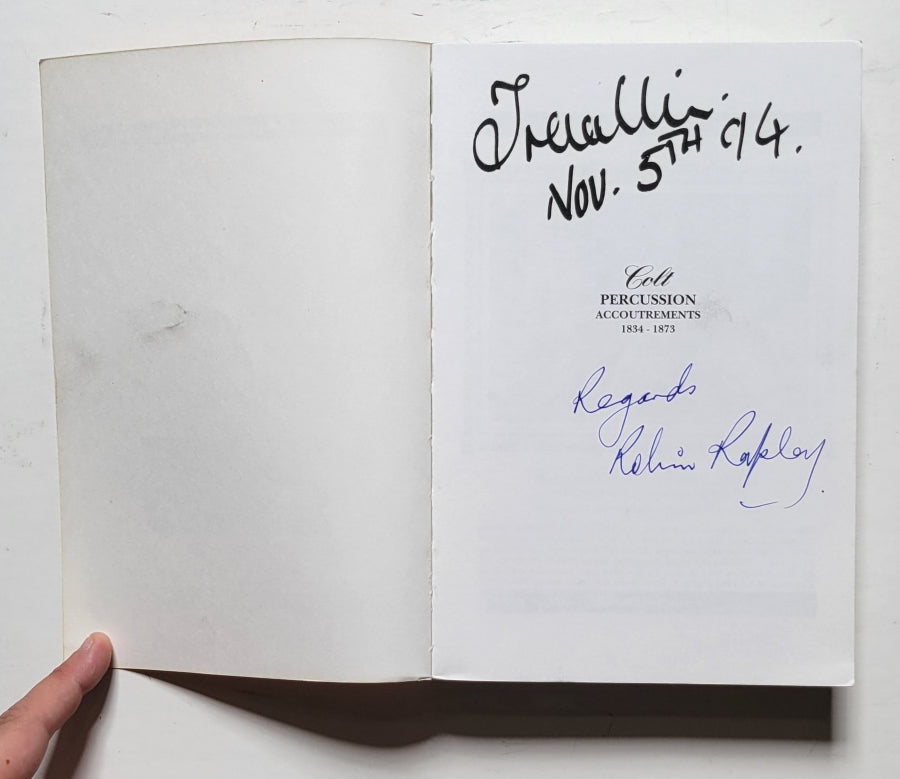 Nov. 5TH 94.
Colt
PERCUSSION
ACCOUTREMENTS
1834 - 1873
Regards
Robin Rapley.